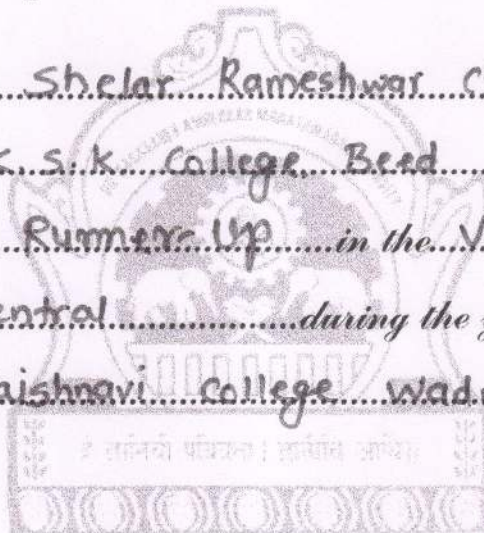 Shelar Rameshwar C
K. S. K. College. Beed
Runner-Up in the V
entral during the
aishnavi College Wad